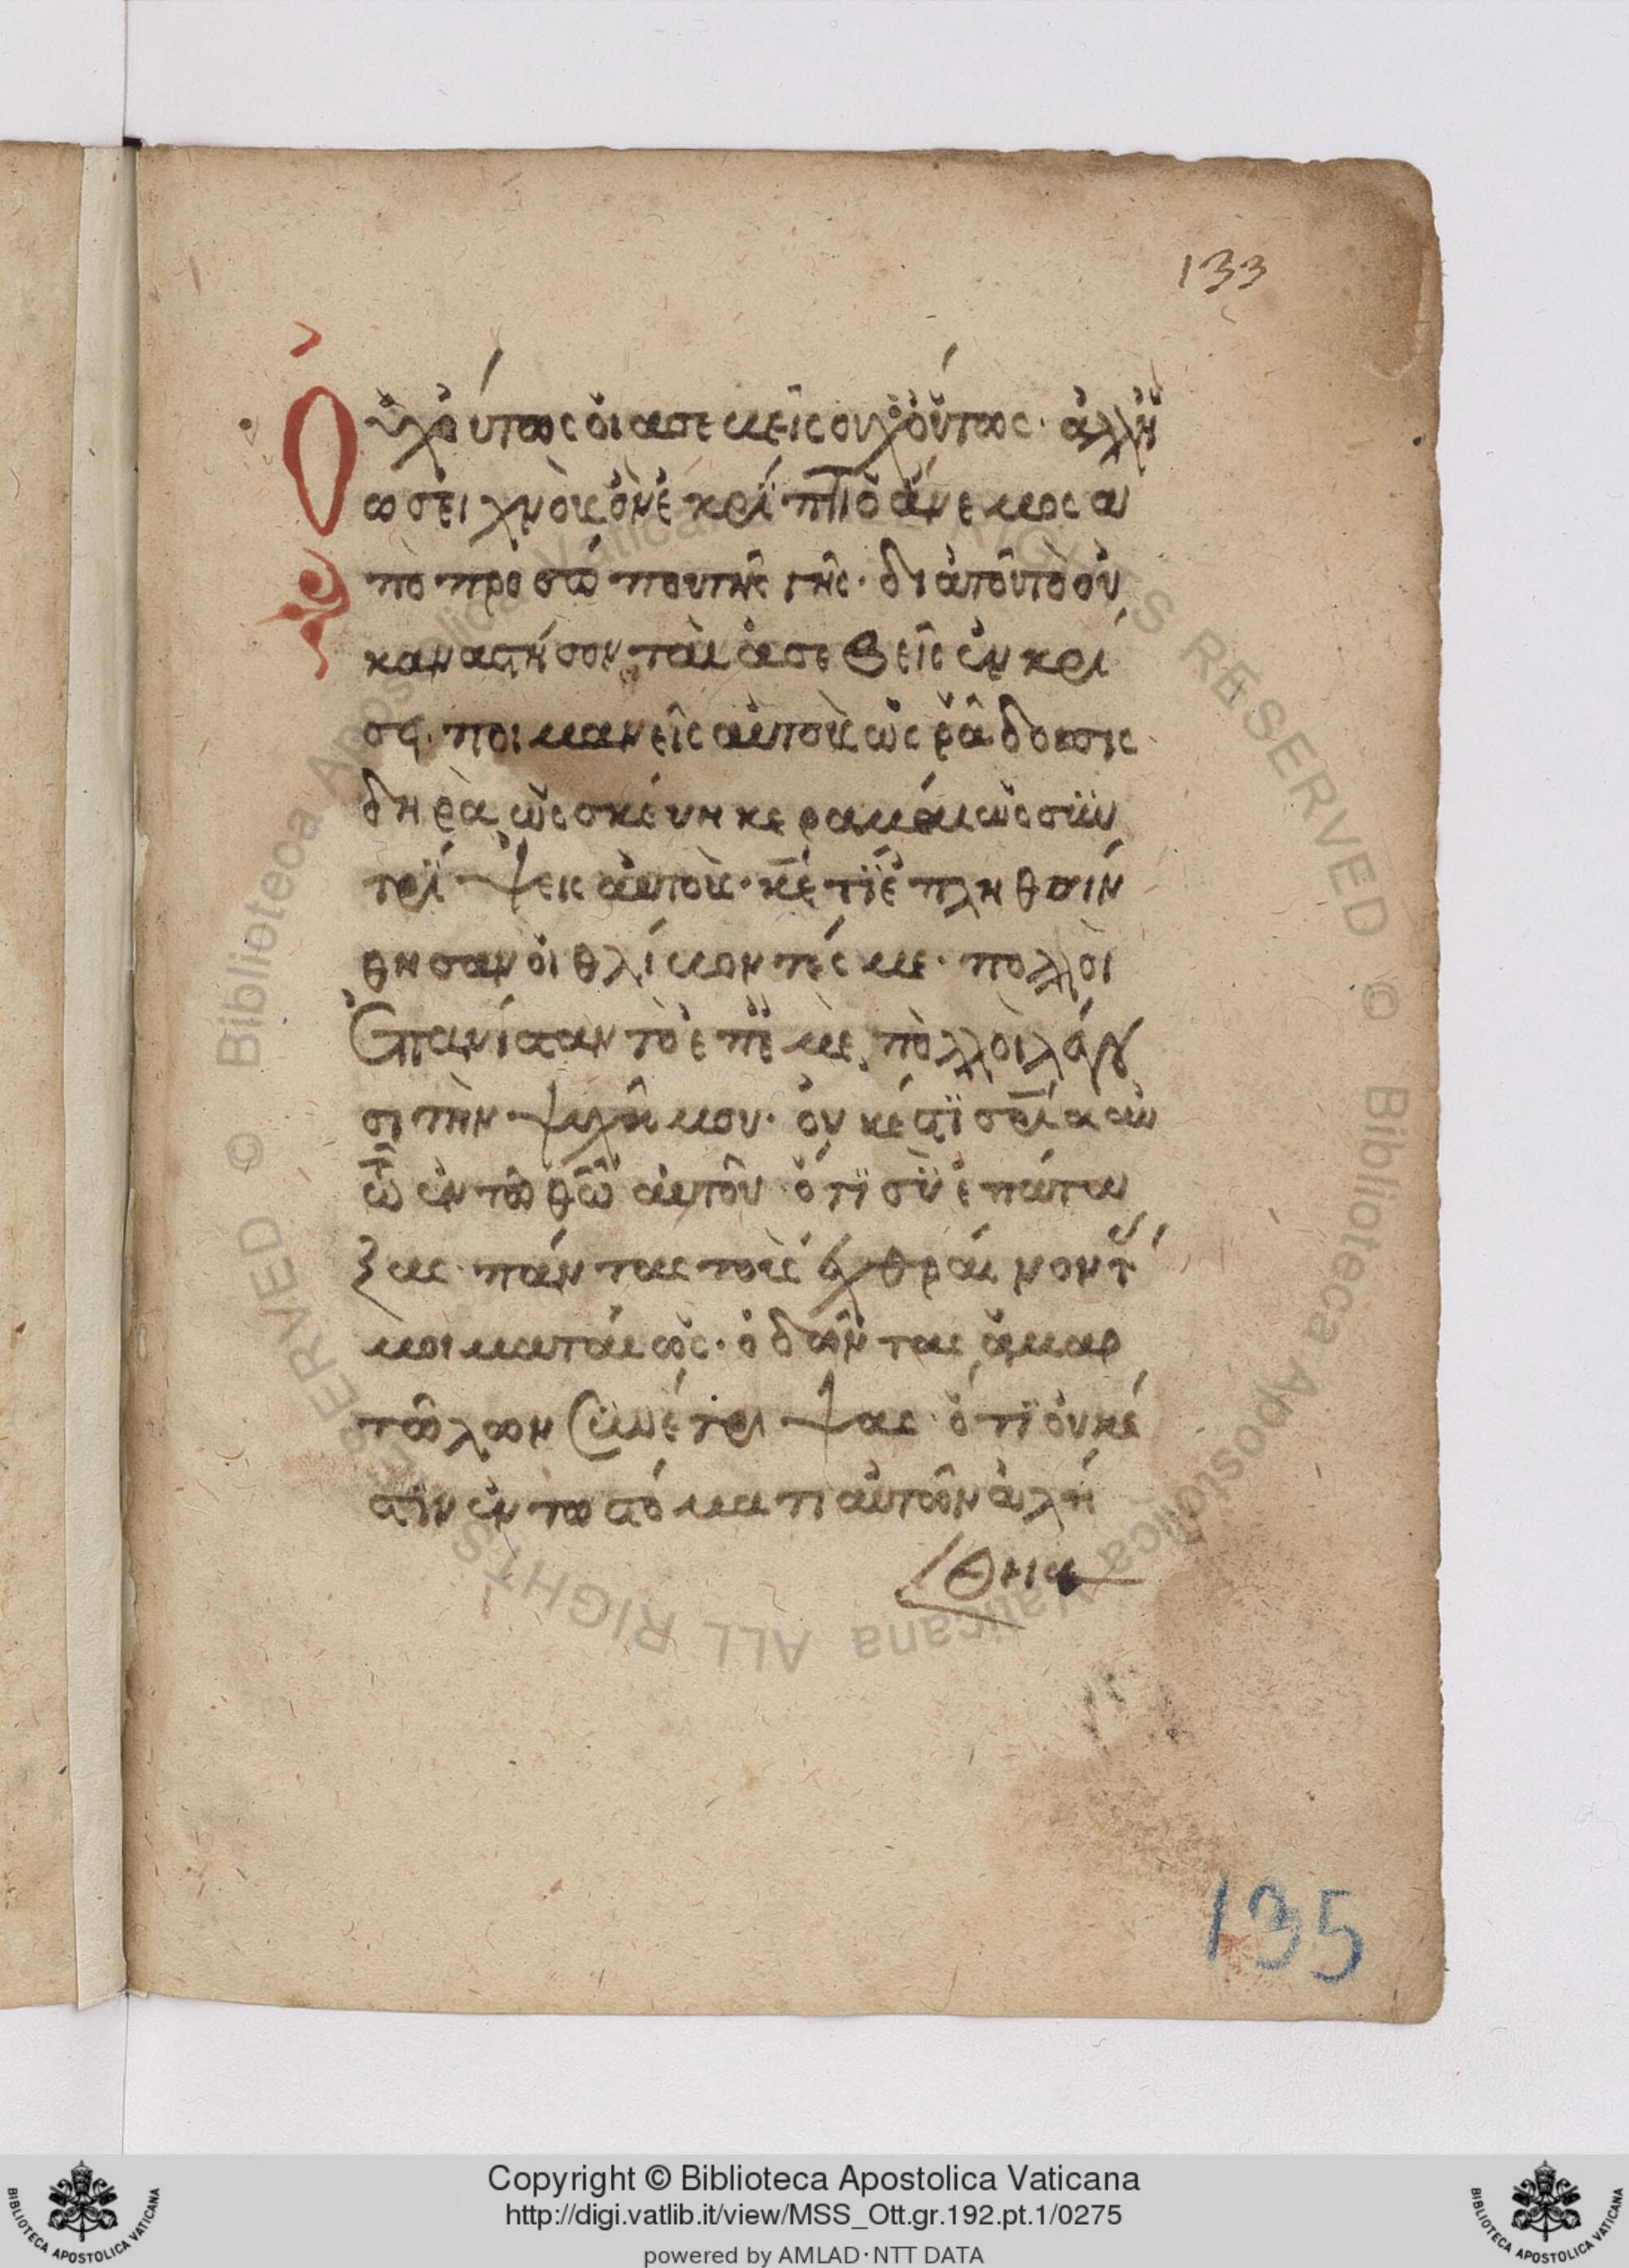 133
Οὐχ οὕτως οἱ ασεμεῖς ουχ οὕτως· ἀλλ' ἢ
ωσεὶ χνοῦς ὃν ἐκρίπτι ὁ άνεμος α
πὸ προσώπου τῆς γῆς· διὰ τοῦτο οὐ
κ αναστήσονται ἀσεβεῖς ἐν κρί
σει· ποιμανεῖς αὐτοὺς ὡς ράβδο εσις
δηρὰ ὡς σκέυη κεραμέως σὺν
τρίψεις αὐτούς· κε τί ἐπληθσίν
θησαν οἱ θλίμοντές με· πολλοὶ
ἐπανίσταντο επ' ἐμὲ πολλοὶ λέγου
σι τὴν ψυχῆ μου· ὀυκ έστι σρία αὐ
τῶ ἐν τῶ θῶ ἀυτοῦ ὅτι σὺ ἐπάτα
ξας πάντας τοὺς ἐχθραί νοντ
μοι ματαίως· ὀδῶντας ἁμαρ
τῶλων συνέτριψας ὅτι ὀυκ έ
στιν ἐν τω στόματι αὐτῶν ἀλή
θεια
135
Copyright © Biblioteca Apostolica Vaticana
http://digi.vatlib.it/view/MSS_Ott.gr.192.pt.1/0275
powered by AMLAD·NTT DATA
BIBLIOTECA APOSTOLICA VATICANA
BIBLIOTECA APOSTOLICA VATICANA
© Biblioteca Apostolica Vaticana ALL RIGHTS RESERVED © Biblioteca Apostolica Vaticana ALL RIGHTS RESERVED